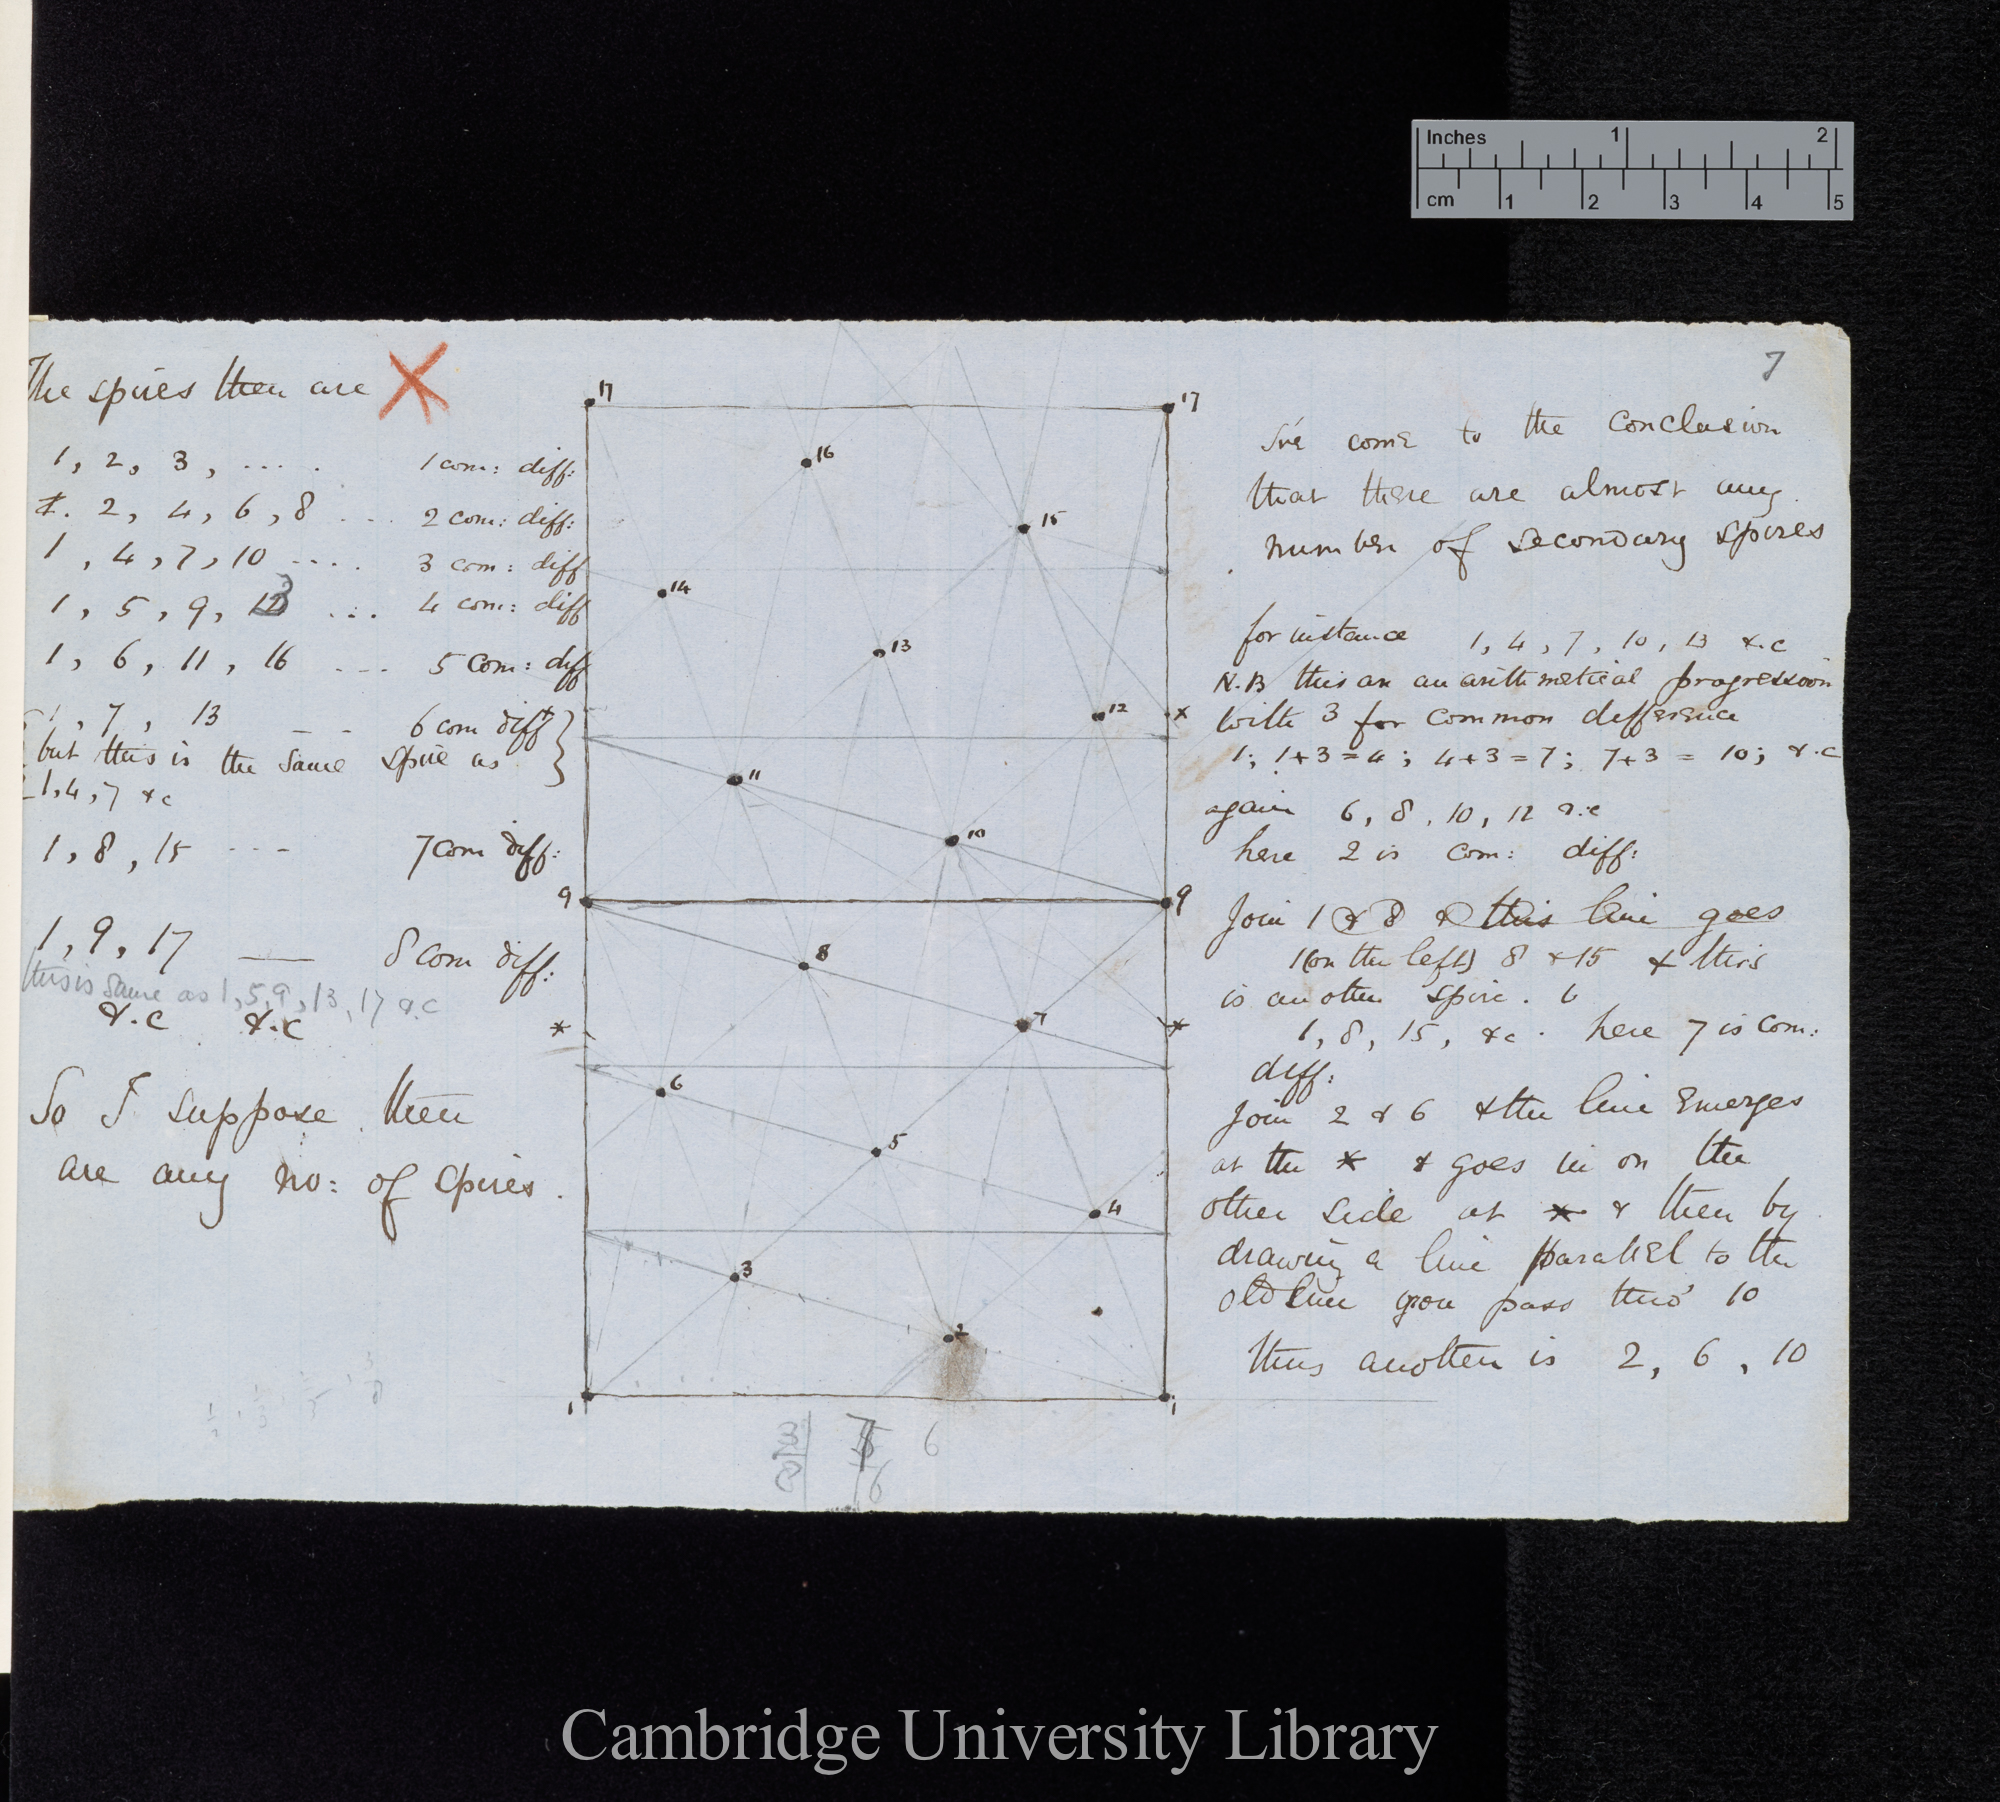 Inches 1 2
cm 1 2 3 4 5
7
The spires then are
1, 2, 3, ....  1 com: diff:
1. 2, 4, 6, 8 ...  2 com: diff:
1, 4, 7, 10 ....  3 com: diff
1, 5, 9, 13 ...  4 com: diff
1, 6, 11, 16 ---  5 com: diff
1, 7, 13 - -  6 com diff
but this is the same spire as
1, 4, 7 &c
1, 8, 15 ---  7 com diff:
1, 9, 17 —  8 com diff:
this is same as 1, 5, 9, 13, 17 &c
&.c &.c
So I suppose then
are any no: of spires.
17 17
16
15
14
13
12 *
11
10
9 9
8
* 7 *
6
5
4
3
2
1 1
3 7 6
8 16
I've come to the conclusion
that there are almost any
number of secondary spires
for instance 1, 4, 7, 10, 13 &.c
N.B this an an arithmetical progression
with 3 for common difference
1; 1+3=4; 4+3=7; 7+3=10; &.c
again 6, 8, 10, 12 &.c
here 2 is com: diff:
Join 1 & 8 & this line goes
1(on the left) 8 & 15 & this
is another spire. 6
1, 8, 15, &c. here 7 is com:
diff:
Join 2 & 6 & the line emerges
at the * & goes in on the
other side at * & then by
drawing a line parallel to the
old line you pass thro' 10
thus another is 2, 6, 10
Cambridge University Library